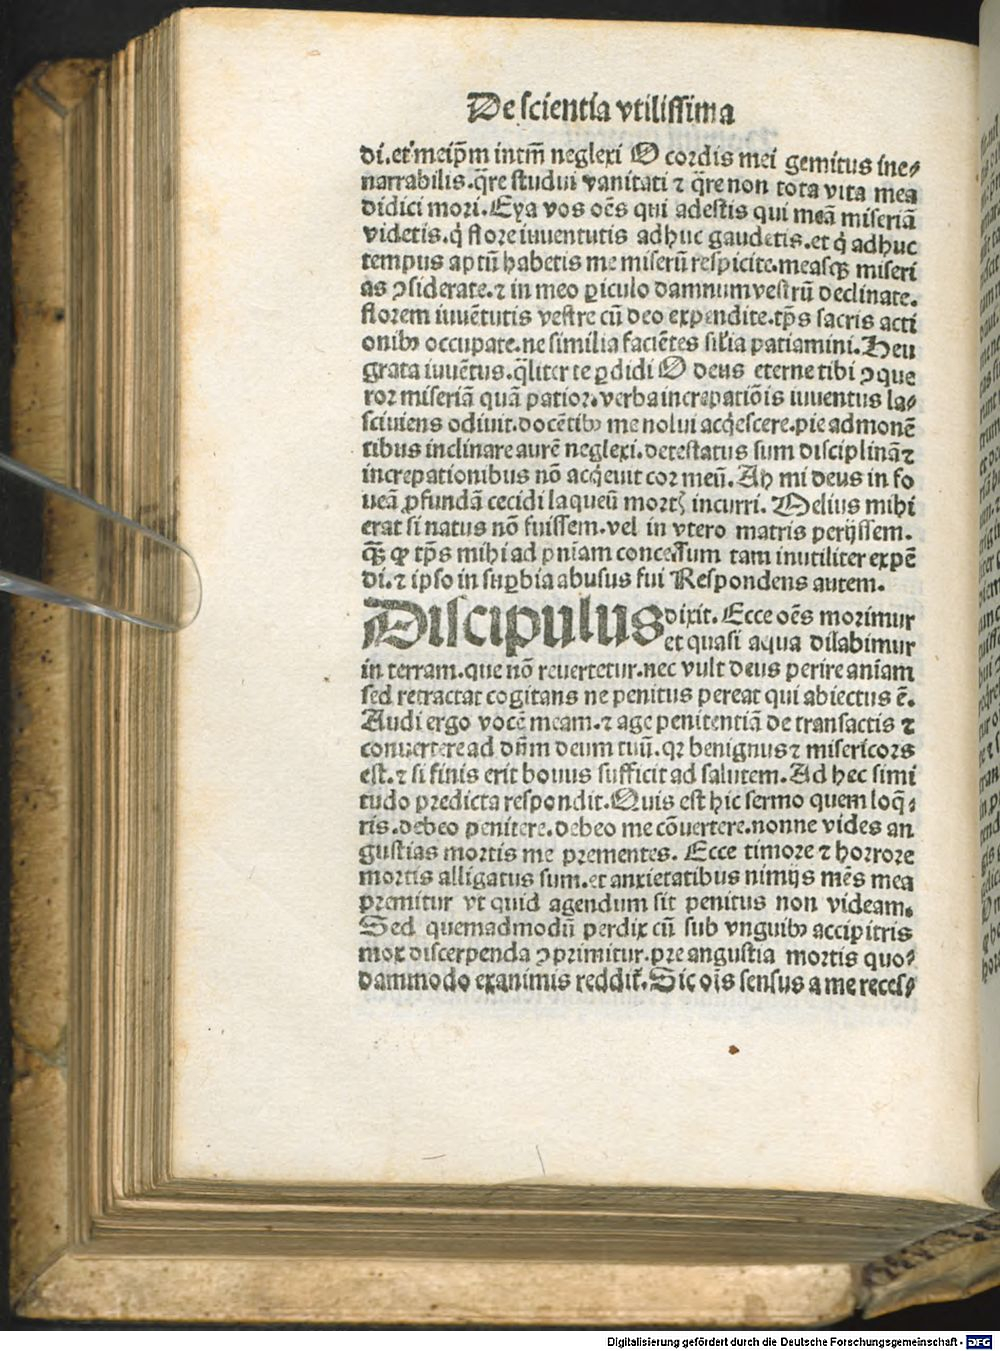 De scientia vtilissima
di. et meip̄m intm̄ neglexi O cordis mei gemitus ine⸗
narrabilis. q̄re studui vanitati ⁊ q̄re non tota vita mea
didici mori. Eya vos oēs qui adestis qui meā miseriā
videtis. q̇ flore iuuentutis adhuc gaudetis. et q̇ adhuc
tempus aptū habetis me miserū respicite. measqꝫ miseri
as ꝯsiderate. ⁊ in meo ꝑiculo damnum vestrū declinate.
florem iuuētutis vestre cū deo expendite. tp̄s sacris acti
onibꝰ occupate. ne similia faciētes silia patiamini. Heu
grata iuuētus. q̄liter te ꝑdidi O deus eterne tibi ꝯque
ror miseriā quā patior. verba increpatiōis iuuentus la⸗
sciuiens odiuit. docētibꝰ me nolui acq̇escere. pie admonē
tibus inclinare aurē neglexi. detestatus sum disciplinā ⁊
increpationibus nō acq̇euit cor meū. Ah mi deus in fo
ueā ꝓfundā cecidi laqueū mortꝭ incurri. Melius mihi
erat si natus nō fuissem. vel in vtero matris perijssem.
qꝫ ꝙ tp̄s mihi ad pn̄iam concessum tam inutiliter expē
di. ⁊ ipso in suꝑbia abusus fui Respondens autem.
Discipulus dixit. Ecce oēs morimur
et quasi aqua dilabimur
in terram. que nō reuertetur. nec vult deus perire aniam
sed retractat cogitans ne penitus pereat qui abiectus ē.
Audi ergo vocē meam. ⁊ age penitentiā de transactis ⁊
conuertere ad dn̄m deum tuū. qꝛ benignus ⁊ misericors
est. ⁊ si finis erit bonus sufficit ad salutem. Ad hec simi
tudo predicta respondit. Quis est hic sermo quem loq̄⸗
ris. debeo penitere. debeo me cōuertere. nonne vides an
gustias mortis me prementes. Ecce timore ⁊ horrore
mortis alligatus sum. et anxietatibus nimijs mēs mea
premitur vt quid agendum sit penitus non videam.
Sed quemadmodū perdix cū sub vnguibꝰ accipitris
mox discerpenda ꝯprimitur. pre angustia mortis quo⸗
dammodo exanimis reddit᷑. Sic ois sensus a me reces⸗
Digitalisierung gefördert durch die Deutsche Forschungsgemeinschaft - DFG